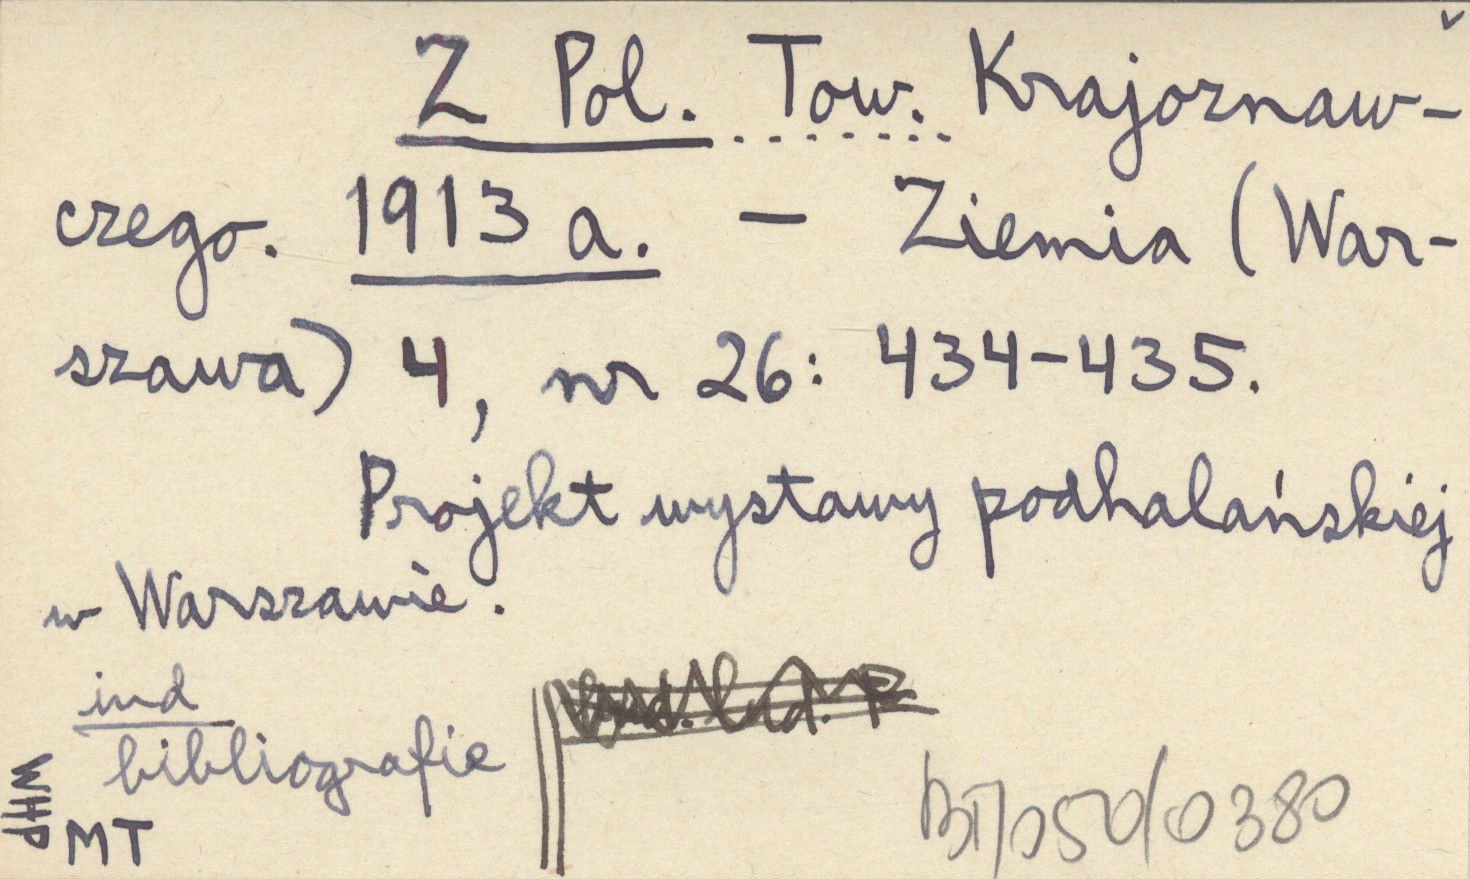 Z Pol. Tow. Krajoznaw-
czego. 1913 a. – Ziemia (War-
szawa) 4, nr 26: 434-435.
Projekt wystawy podhalańskiej
w Warszawie.
ind
bibliografie
WHP
MT
BT/050/0380